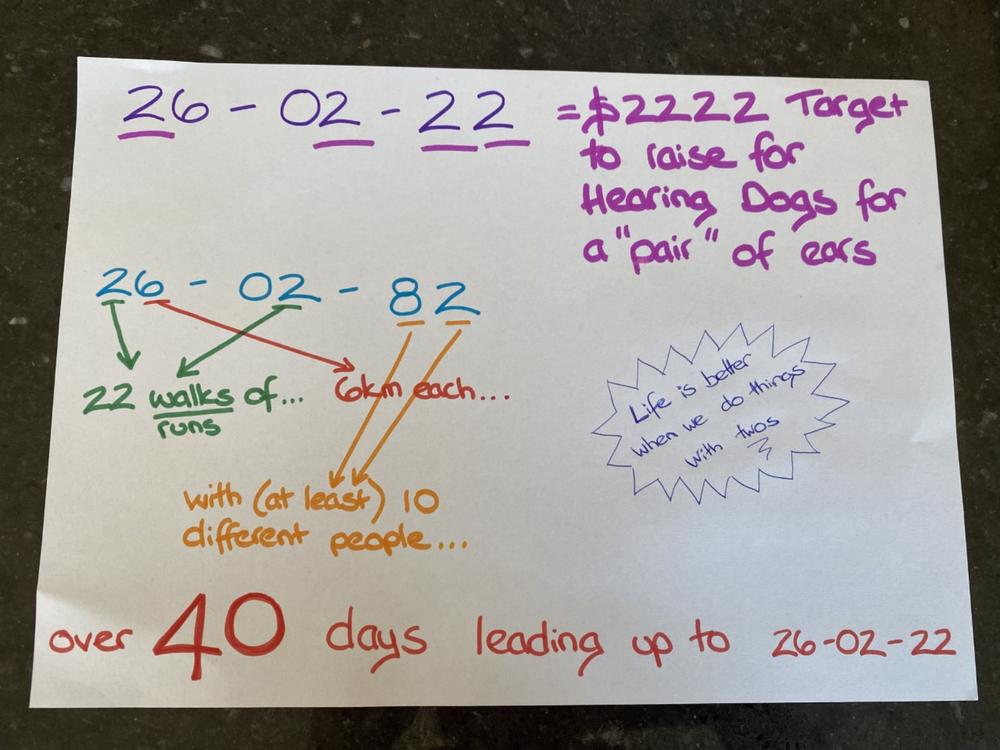 26 - 02 - 22 = $2222 Target
to raise for
Hearing Dogs for
a "pair" of ears
26 - 02 - 82
22 walks of...
runs
6km each...
with (at least) 10
different people...
Life is better
when we do things
with twos
over 40 days leading up to 26-02-22